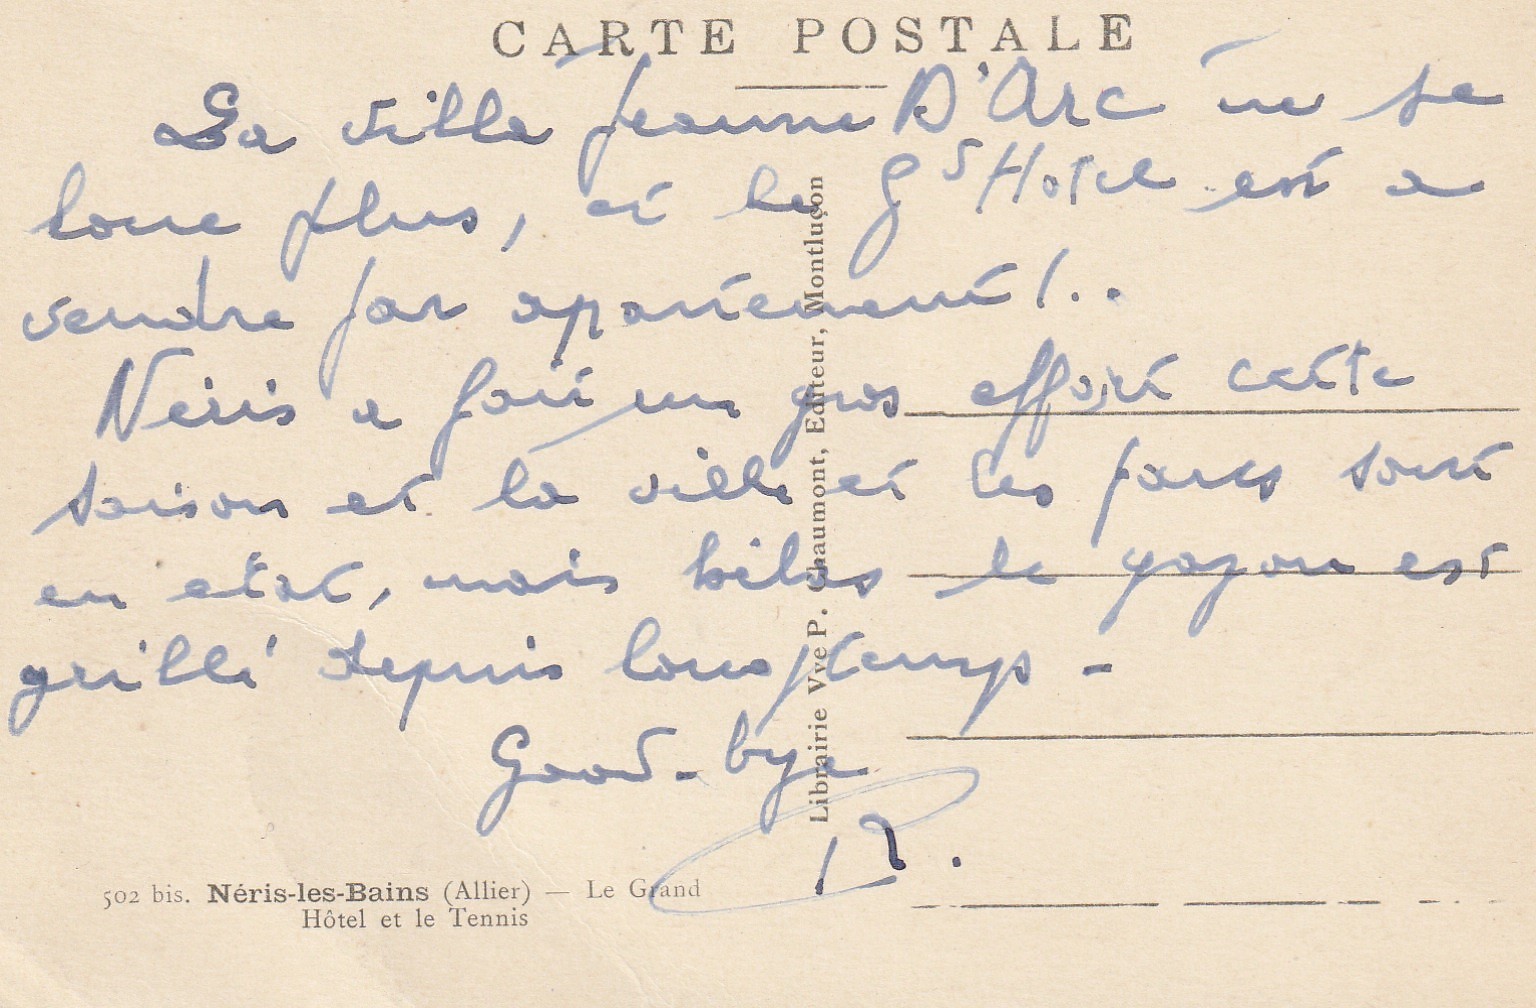 CARTE POSTALE
La villa Jeanne D'Arc ne se
loue plus, et le Gd Hotel est a
vendre par apartement !..
Neris a fait un gros effort cette
saison et la ville et les parcs sont
en etat, mais hélas le gazon est
grillé depuis longtemps -
Good-bye
R.
Librairie Vve P. Chaumont, Editeur, Montluçon
502 bis. Néris-les-Bains (Allier) — Le Grand
Hôtel et le Tennis